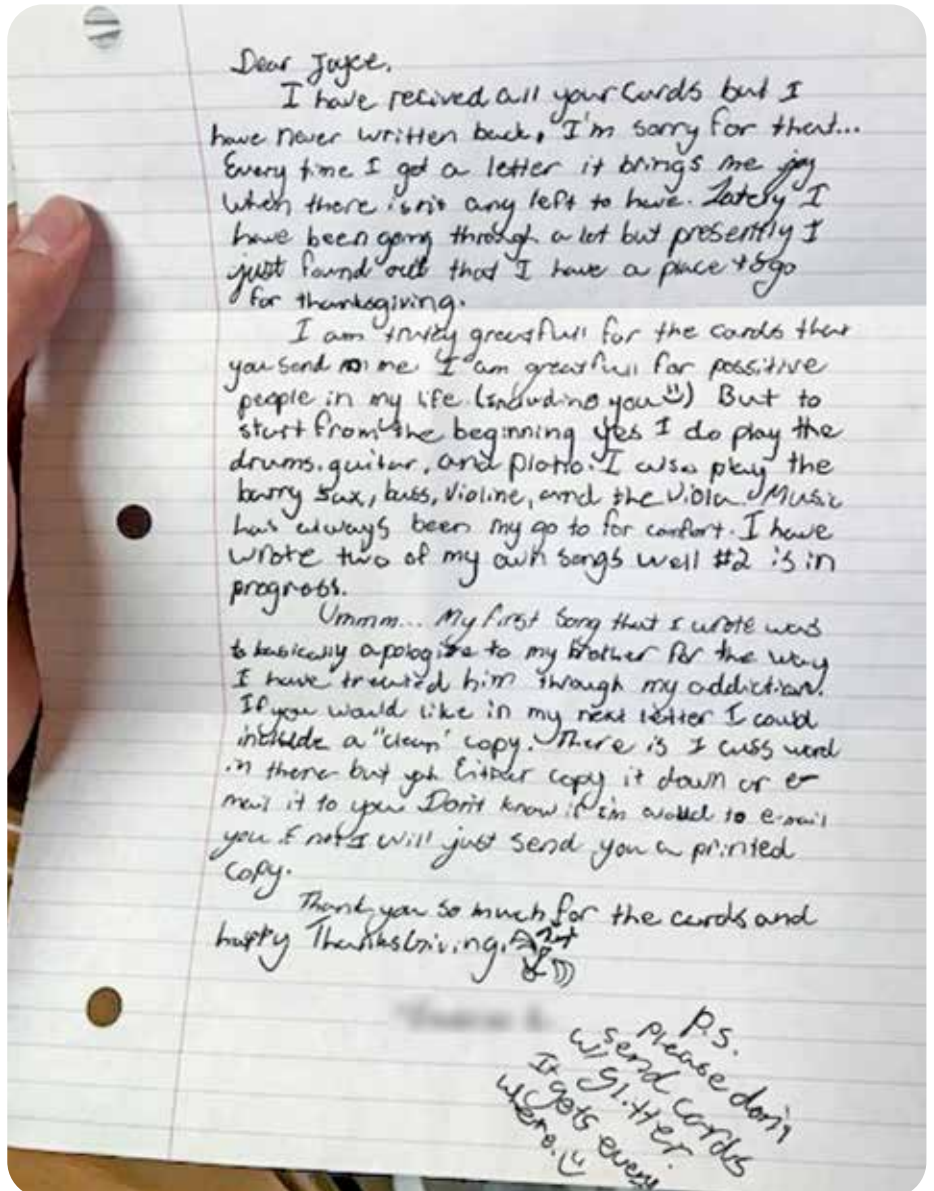 Dear Joyce,
I have recived all your Cards but I
have never written back, I'm sorry for that...
Every time I get a letter it brings me joy
when there isn't any left to have. Lately I
have been going through a lot but presently I
just found out that I have a place to go
for thanksgiving.
I am truley greatfull for the cards that
you send me I am greatfull for possitive
people in my life (including you☺) But to
start from the beginning yes I do play the
drums, guitar, and piano. I also play the
barry sax, bass, violine, and the viola. Music
has always been my go to for comfort. I have
wrote two of my own songs well #2 is in
progress.
Ummm... My first song that I wrote was
to basically apologize to my brother for the way
I have treated him through my addiction.
If you would like in my next letter I could
include a "clean" copy. There is 1 cuss word
in there but yah Either copy it down or e-
mail it to you Don't know if im to e-mail
you if not I will just send you a printed
copy.
Thank you so much for the cards and
happy ThanksGiving.
P.S.
Please don't
send cards
w/ Glitter
It gets every
where. ☺